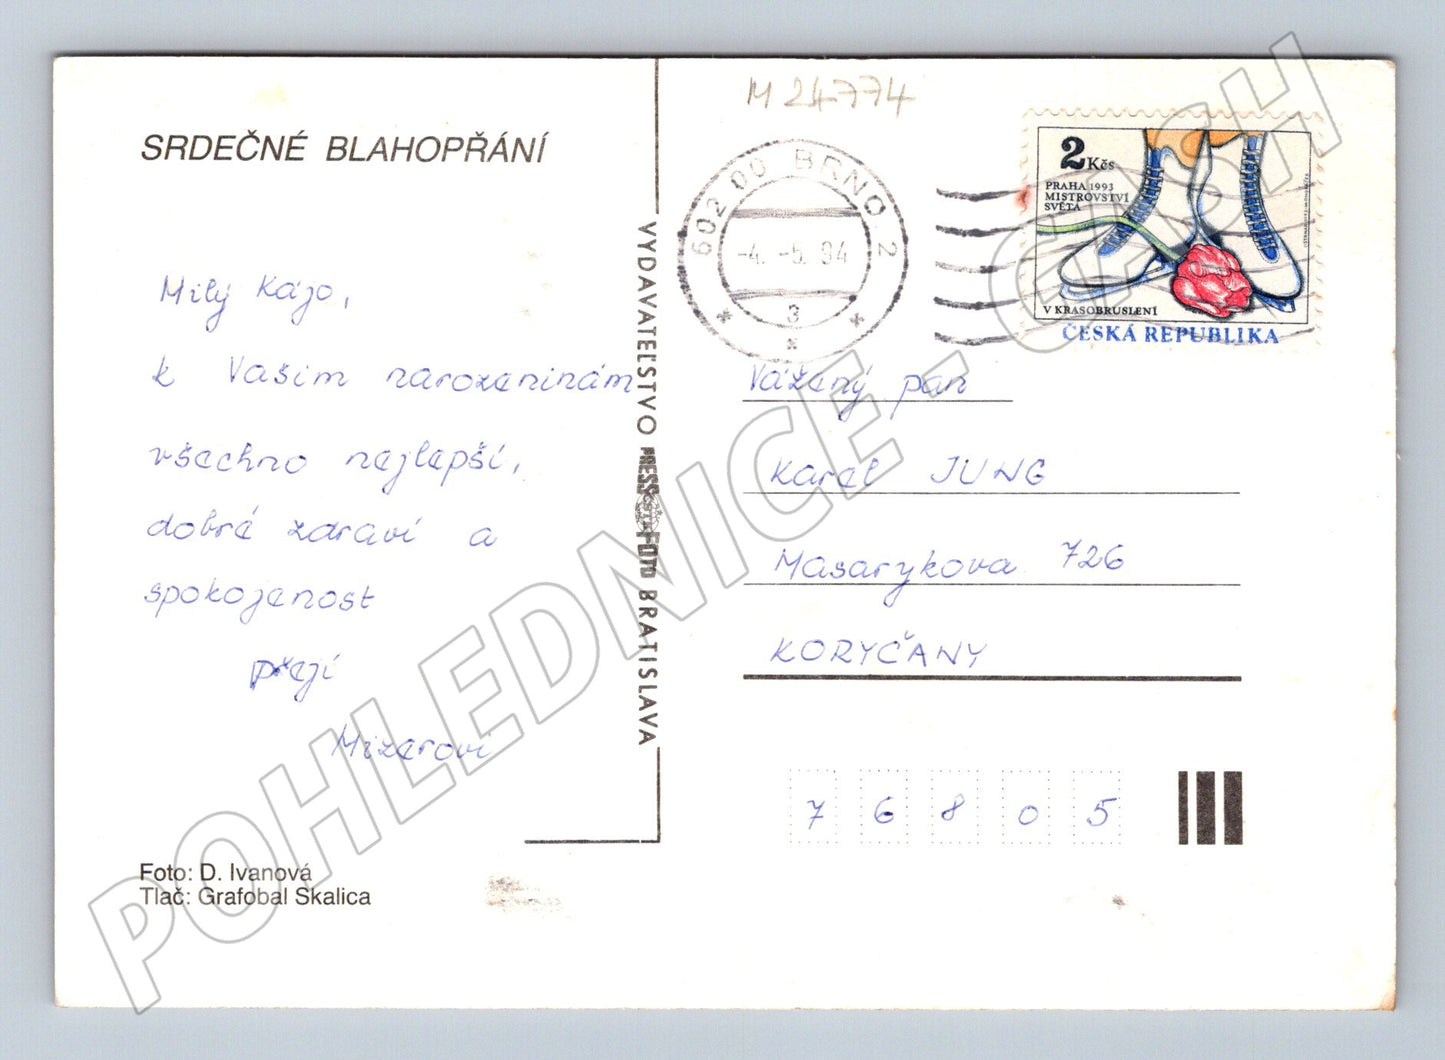 SRDEČNÉ BLAHOPŘÁNÍ
Milý Kájo,
k Vašim narozeninám
všechno nejlepší,
dobré zdraví a
spokojenost
přejí
Mizerovi
Foto: D. Ivanová
Tlač: Grafobal Skalica
VYDAVATEĽSTVO PRESSFOTO BRATISLAVA
ČSTK
M 24774
602 00 BRNO 2
-4. -5. 94
3
2 Kčs
PRAHA 1993
MISTROVSTVÍ
SVĚTA
V KRASOBRUSLENÍ
ČESKÁ REPUBLIKA
Vážený pan
Karel JUNG
Masarykova 726
KORYČANY
76805
POHLEDNICE - CASH